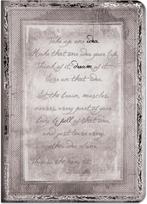 Take up one idea.
Make that one idea your life
Think of it, dream of it
live on that idea.
Let the brain, muscles,
nerves, every part of your
body be full of that idea,
and just leave every
other idea alone.
This is the way to